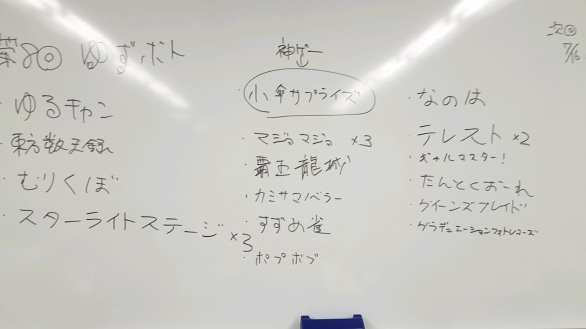 第20回 ゆずボト
・ゆるキャン
・東方数天録
・むりくぼ
・スターライトステージ ×3
神ゲー
↓
・小傘サプライズ
・マジョマジョ ×3
・覇王龍城
・カミサマノベラー
・すずめ雀
・ポプポブ
次回
7/16
・なのは
・テレスト×2
・ギャルマスター!
・たんとくおーれ
・クイーンズブレイド
・グラデュエーションフォトレコーズ